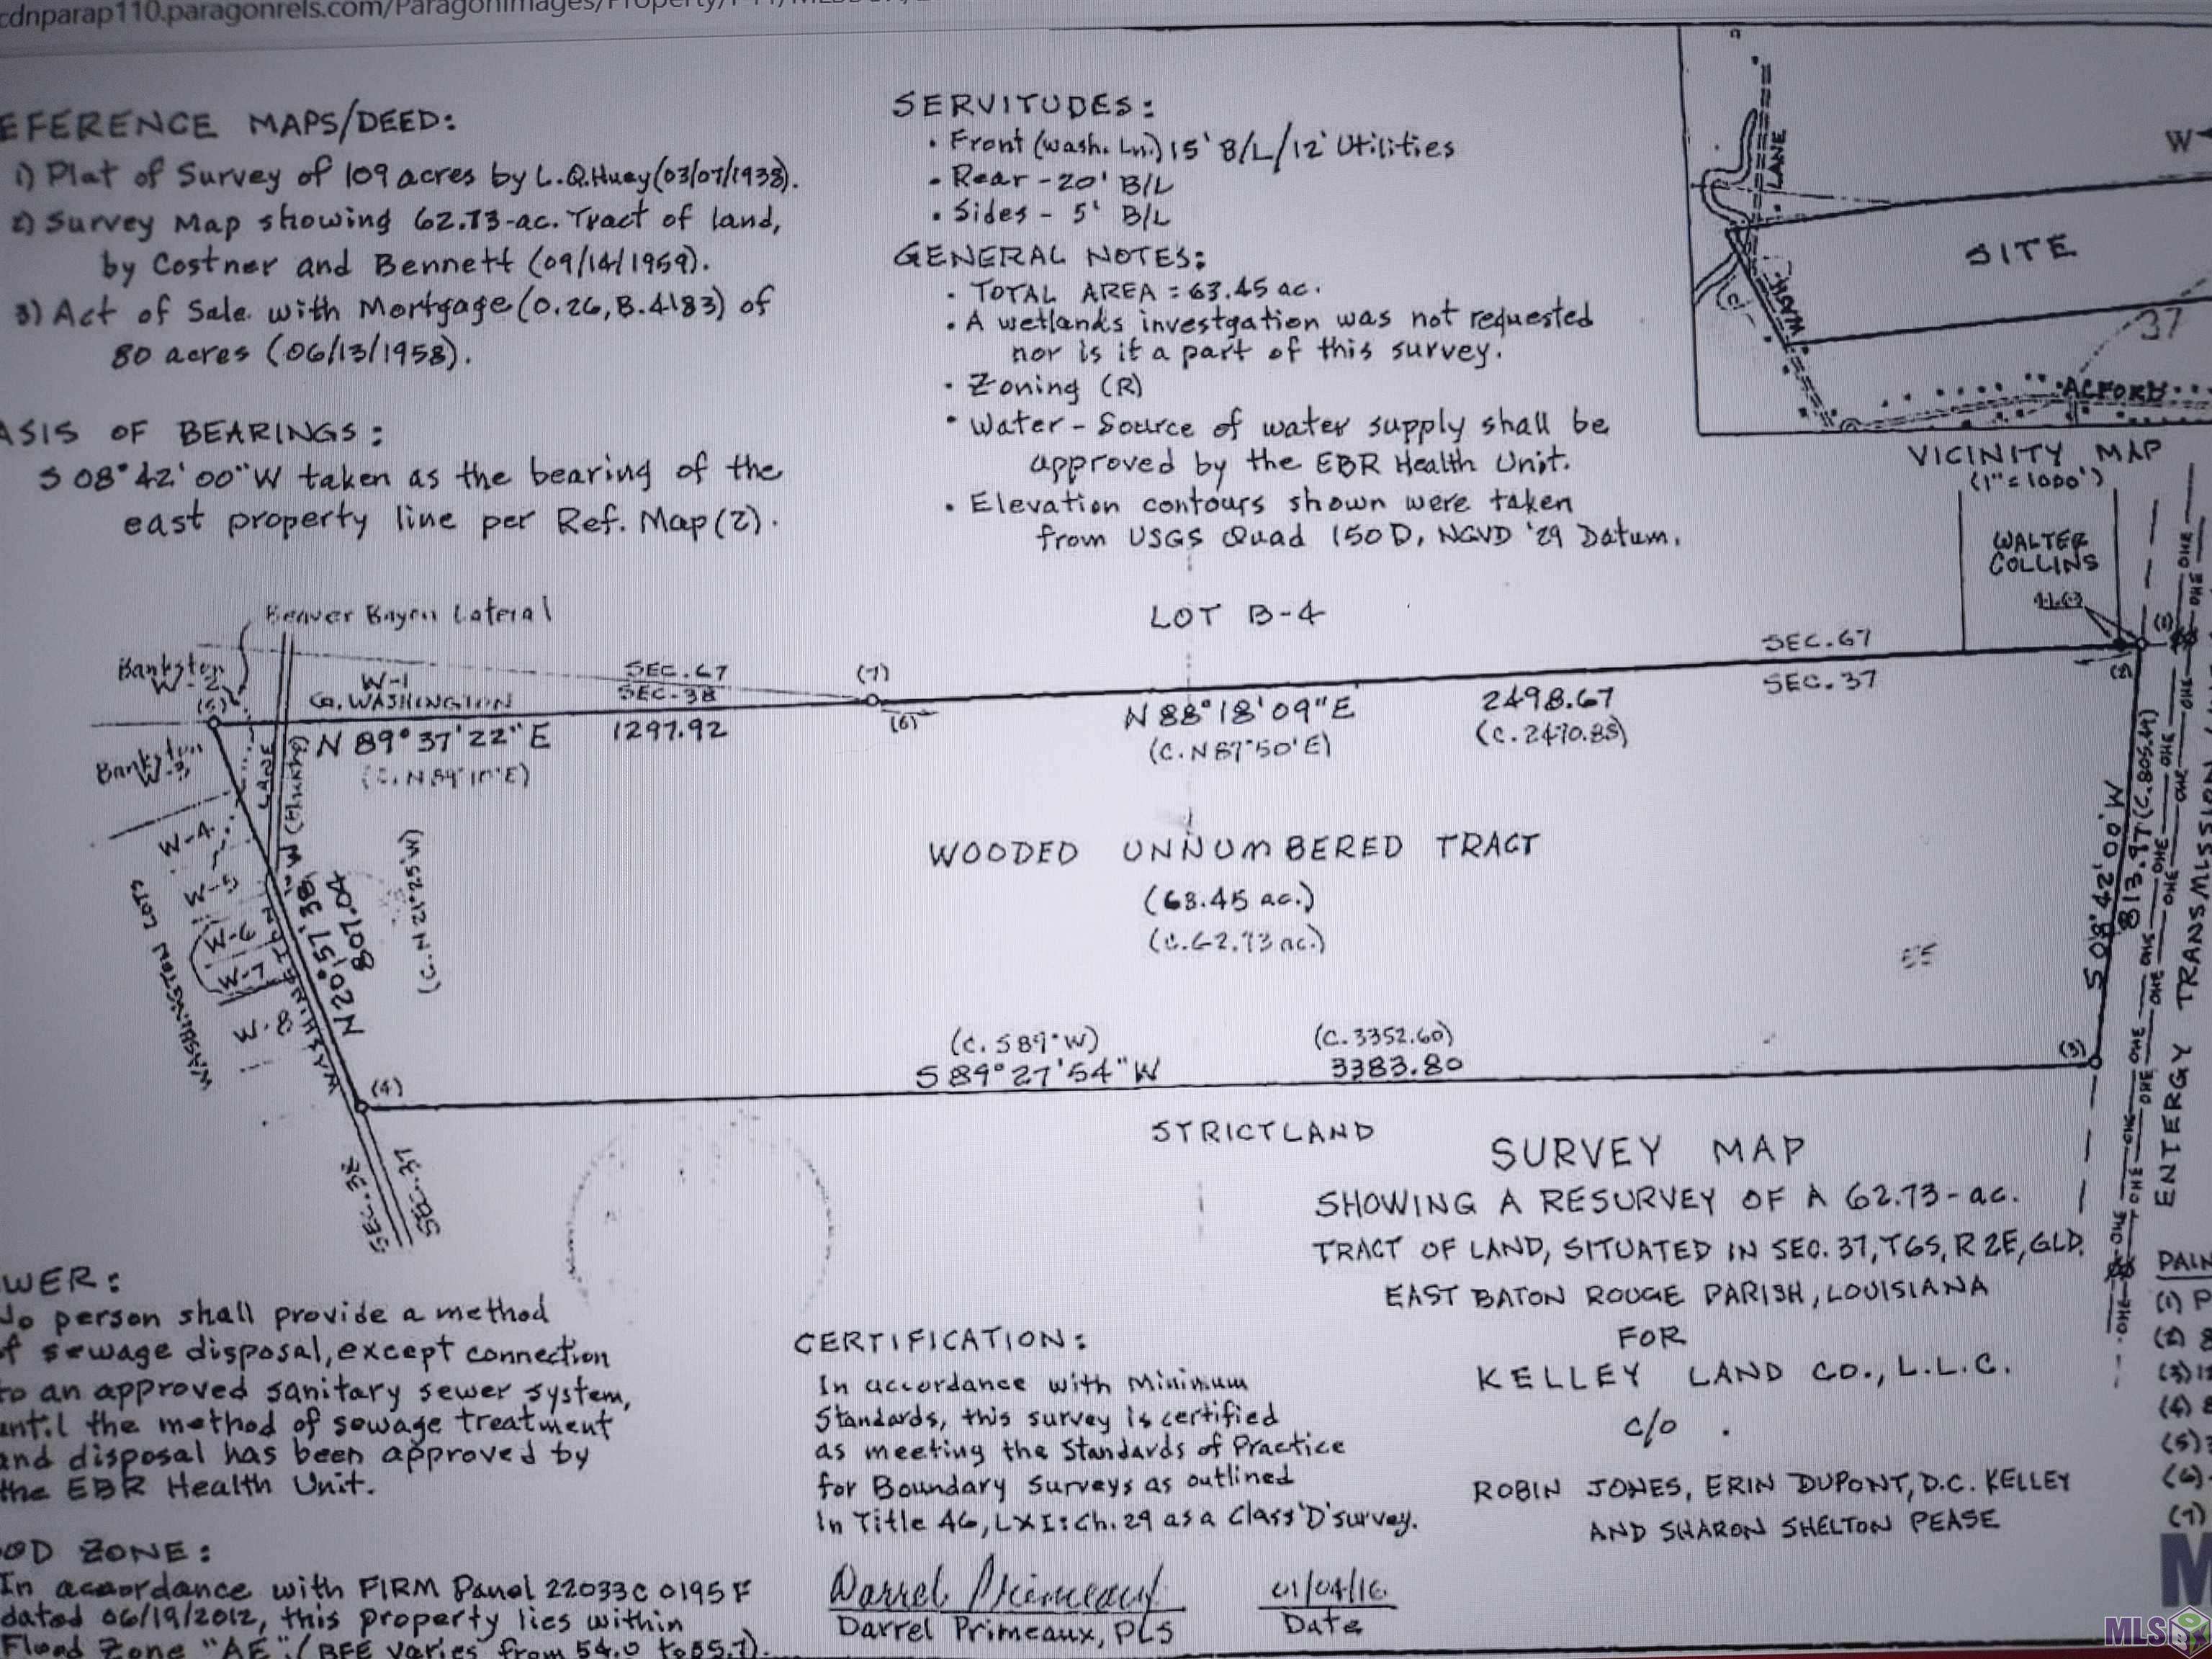 cdnparap110.paragonrels.com/ParagonImages/Property/
EFERENCE MAPS/DEED:
1) Plat of Survey of 109 acres by L.Q. Huey (03/07/1938).
2) Survey Map showing 62.73-ac. Tract of land,
by Costner and Bennett (09/14/1959).
3) Act of Sale with Mortgage (O.26, B.4183) of
80 acres (06/13/1958).
ASIS OF BEARINGS:
S 08°42'00"W taken as the bearing of the
east property line per Ref. Map (2).
SERVITUDES:
• Front (Wash. Ln.) 15' B/L/12' Utilities
• Rear - 20' B/L
• Sides - 5' B/L
GENERAL NOTES:
• TOTAL AREA = 63.45 ac.
• A wetlands investgation was not requested
nor is it a part of this survey.
• Zoning (R)
• Water - Source of water supply shall be
approved by the EBR Health Unit.
• Elevation contours shown were taken
from USGS Quad 150D, NGVD '29 Datum.
LANE
W
SITE
WASH.
37
ALFORD
VICINITY MAP
(1"=1000')
WALTER
COLLINS
Beaver Bayou Lateral
LOT B-4
Bankston
W-2
(5)
W-1
Ca. WASHINGTON
SEC. 67
SEC. 38
(7)
(6)
SEC. 67
SEC. 37
(1)
(2)
N 89°37'22" E 1297.92
(C. N 89°10'E)
N 88°18'09"E 2498.67
(C. N 87°50'E) (C. 2470.88)
Bankston
W-3
W-4
W-5
W-6
W-7
W-8
WASHINGTON LOTS
WASHINGTON LANE
N 20°57'38" W
807.04
(C. N 21°25'W)
WOODED UNNUMBERED TRACT
(63.45 ac.)
(C. 62.73 ac.)
S 08°42'00"W
813.97 (C. 805.49)
OHE
ENTERGY TRANSMISSION
(C. S 89°W) (C. 3352.60)
S 89°27'54"W 3383.80
(3)
(4)
STRICTLAND
SEC. 38
SEC. 37
SURVEY MAP
SHOWING A RESURVEY OF A 62.73-ac.
TRACT OF LAND, SITUATED IN SEC. 37, T6S, R2E, GLD,
EAST BATON ROUGE PARISH, LOUISIANA
FOR
KELLEY LAND CO., L.L.C.
c/o
ROBIN JONES, ERIN DUPONT, D.C. KELLEY
AND SHARON SHELTON PEASE
WER:
No person shall provide a method
of sewage disposal, except connection
to an approved sanitary sewer system,
until the method of sewage treatment
and disposal has been approved by
the EBR Health Unit.
OOD ZONE:
In accordance with FIRM Panel 22033C 0195 F
dated 06/19/2012, this property lies within
Flood Zone "AE". (BFE varies from 54.0 to 55.7).
CERTIFICATION:
In accordance with Minimum
Standards, this survey is certified
as meeting the Standards of Practice
for Boundary Surveys as outlined
in Title 46, LXI: Ch. 29 as a Class 'D' survey.
Darrel Primeaux 01/04/16
Darrel Primeaux, PLS Date
(1) P
(2)
(3)
(4)
(5)
(6)
(7)
MLS